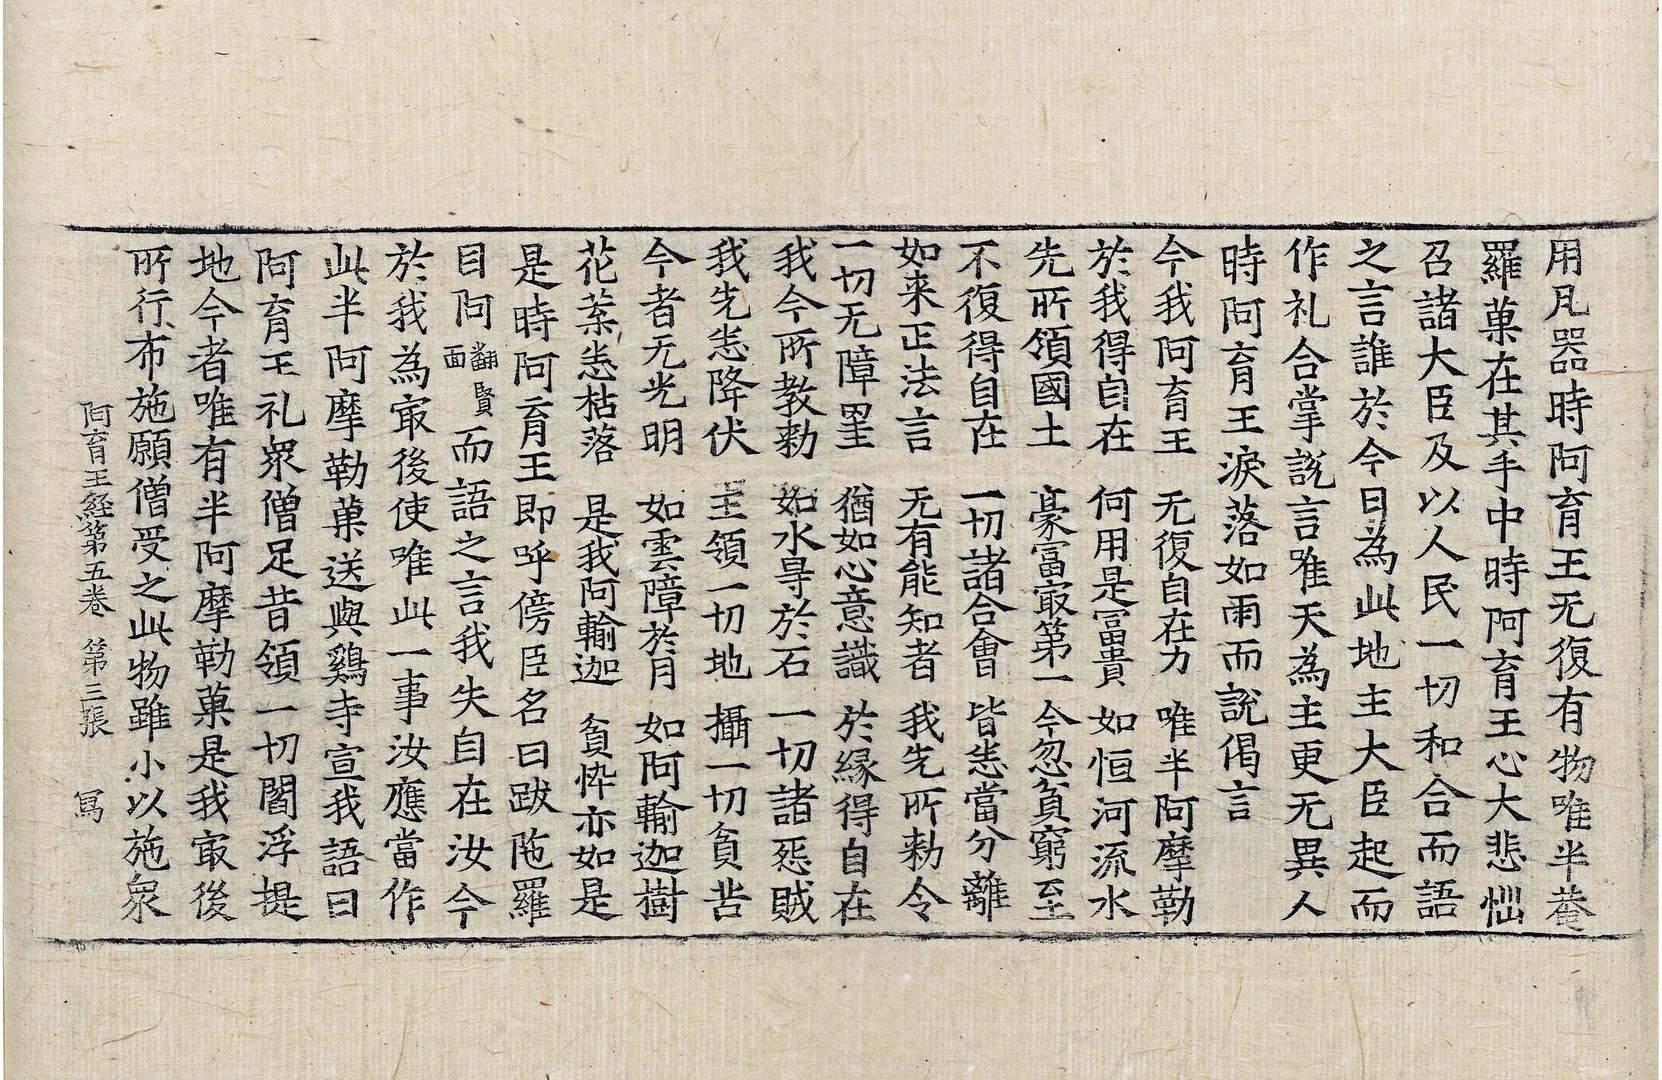 用凡器時阿育王无復有物唯半菴
羅菓在其手中時阿育王心大悲惱
召諸大臣及以人民一切和合而語
之言誰於今日為此地主大臣起而
作礼合掌說言唯天為主更无異人
時阿育王淚落如雨而說偈言
今我阿育王　无復自在力　唯半阿摩勒
於我得自在　何用是富貴　如恒河流水
先所領國土　豪富㝡第一　今忽貧窮至
不復得自在　一切諸合會　皆悉當分離
如来正法言　无有能知者　我先所勑令
一切无障㝵　猶如心意識　於緣得自在
我今所教勑　如水㝵於石　一切諸惡賊
我先悉降伏　主領一切地　攝一切貧苦
今者无光明　如雲障於月　如阿輸迦樹
花葉悉枯落　是我阿輸迦　貧悴亦如是
是時阿育王即呼傍臣名曰跋陁羅
目阿翻賢面而語之言我失自在汝今
於我為㝡後使唯此一事汝應當作
此半阿摩勒菓送與鷄寺宣我語曰
阿育王礼衆僧足昔領一切閻浮提
地今者唯有半阿摩勒菓是我㝡後
所行布施願僧受之此物雖小以施衆
阿育王経第五卷　第三張　寫